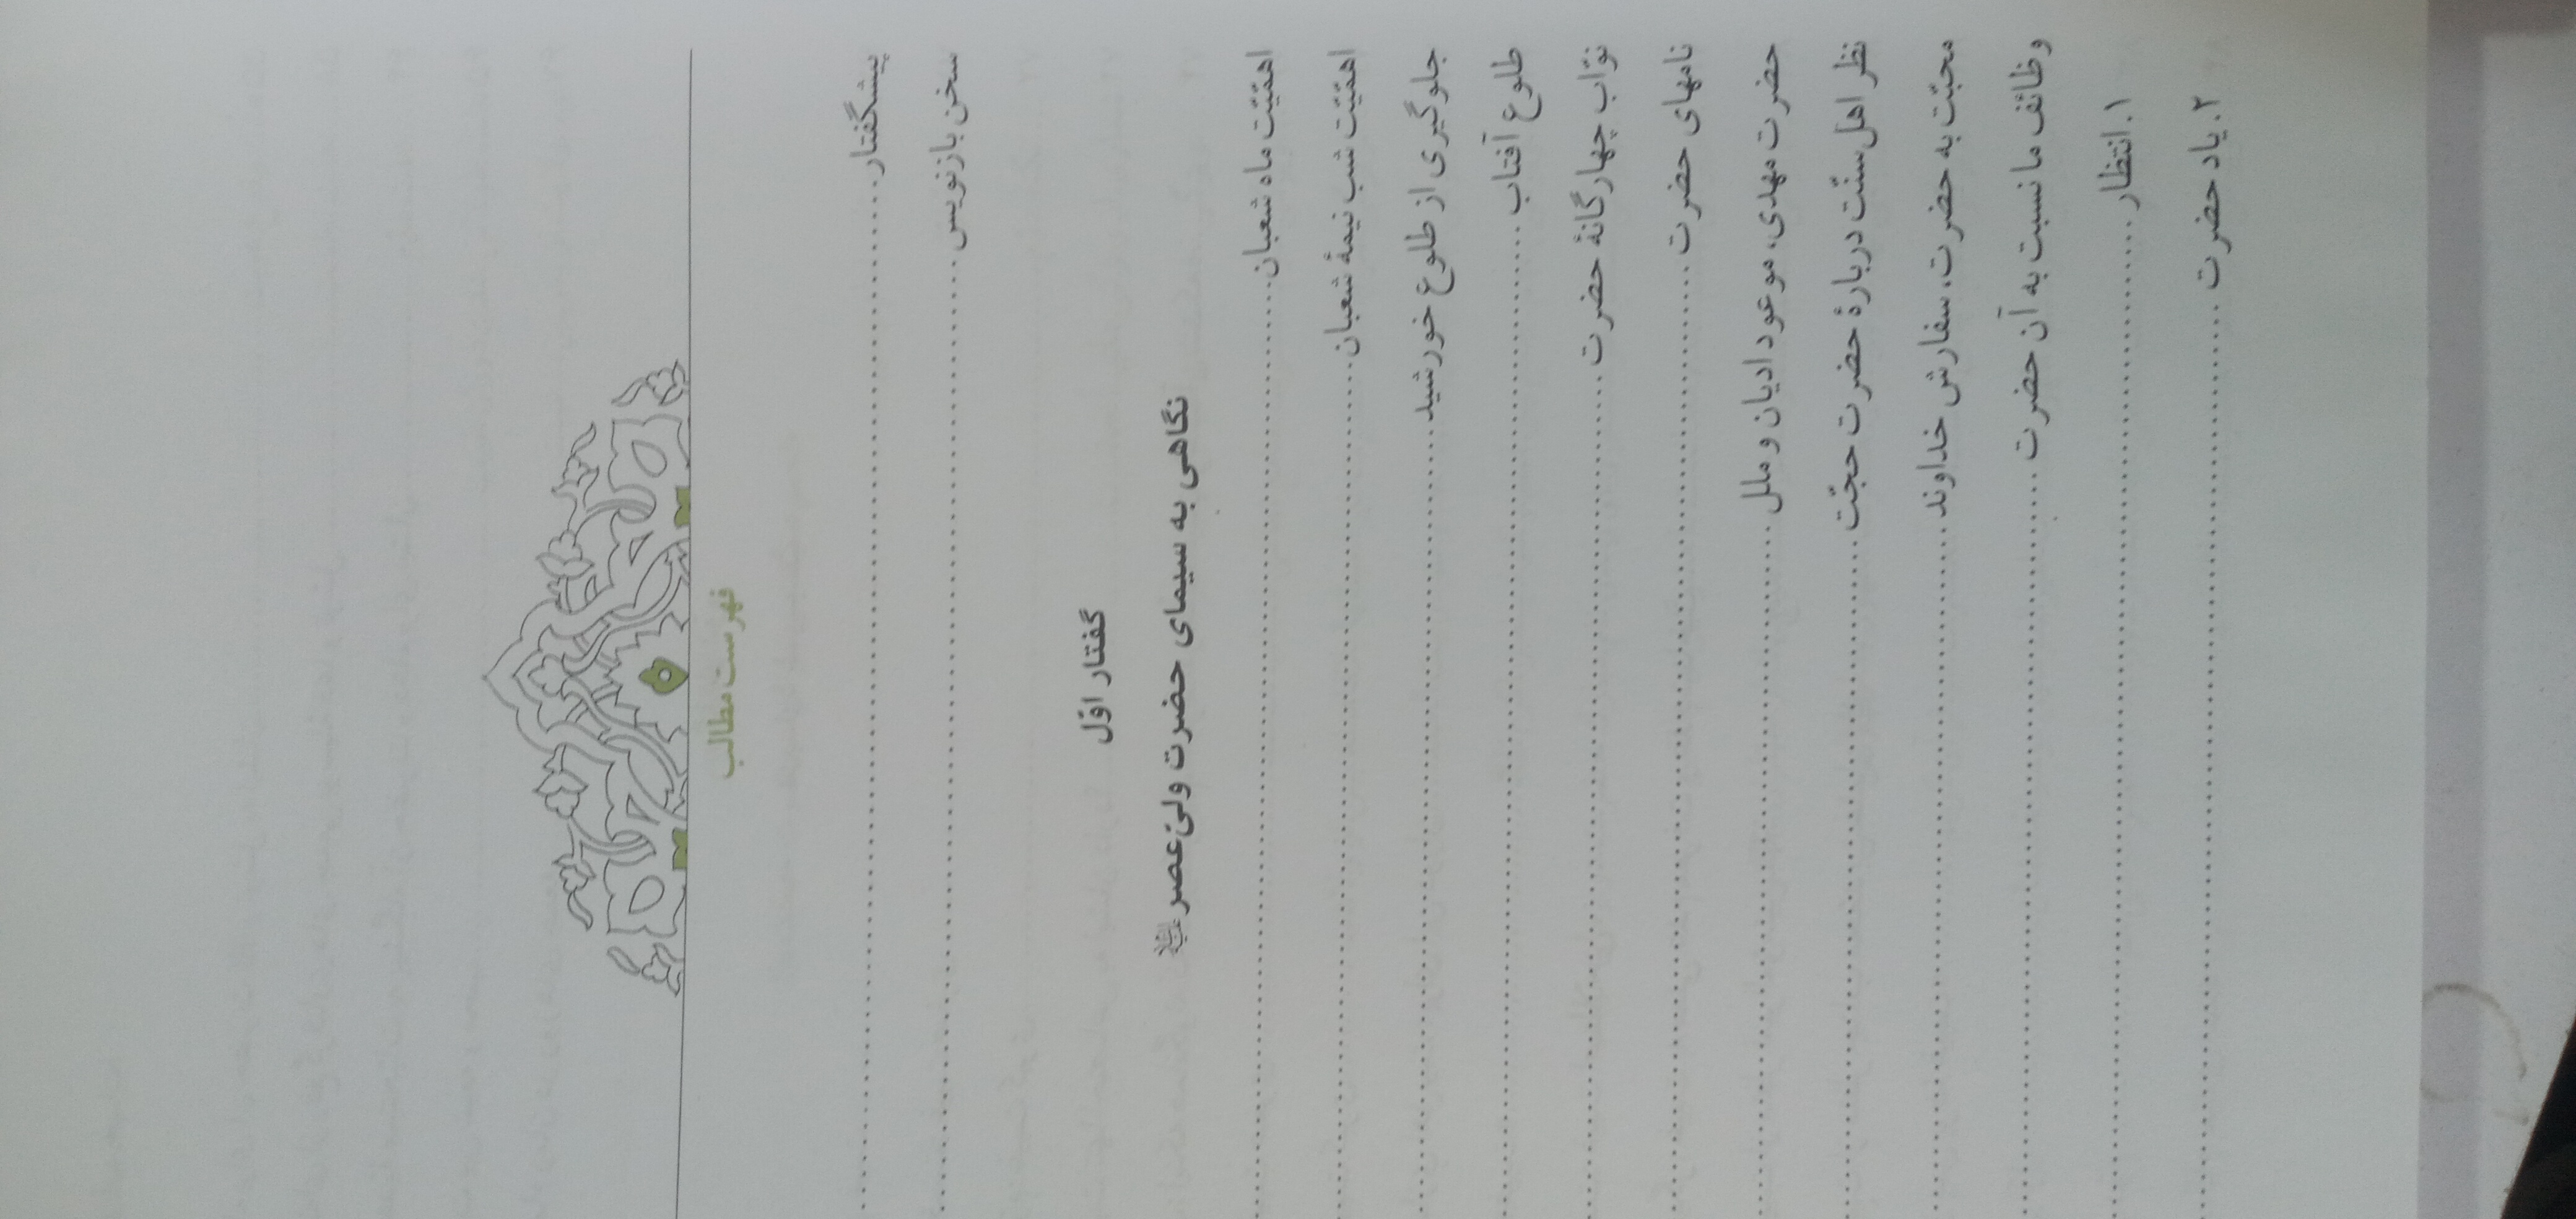 ۵
فهرست مطالب
پیشگفتار
سخن بازنویس
گفتار اوّل
نگاهی به سیمای حضرت ولیّ‌عصر
اهمّیّت ماه شعبان
اهمّیّت شب نیمهٔ شعبان
جلوگیری از طلوع خورشید
طلوع آفتاب
نوّاب چهارگانهٔ حضرت
نامهای حضرت
حضرت مهدی، موعود ادیان و ملل
نظر اهل سنّت دربارهٔ حضرت حجّت
محبّت به حضرت، سفارش خداوند
وظائف ما نسبت به آن حضرت
۱. انتظار
۲. یاد حضرت